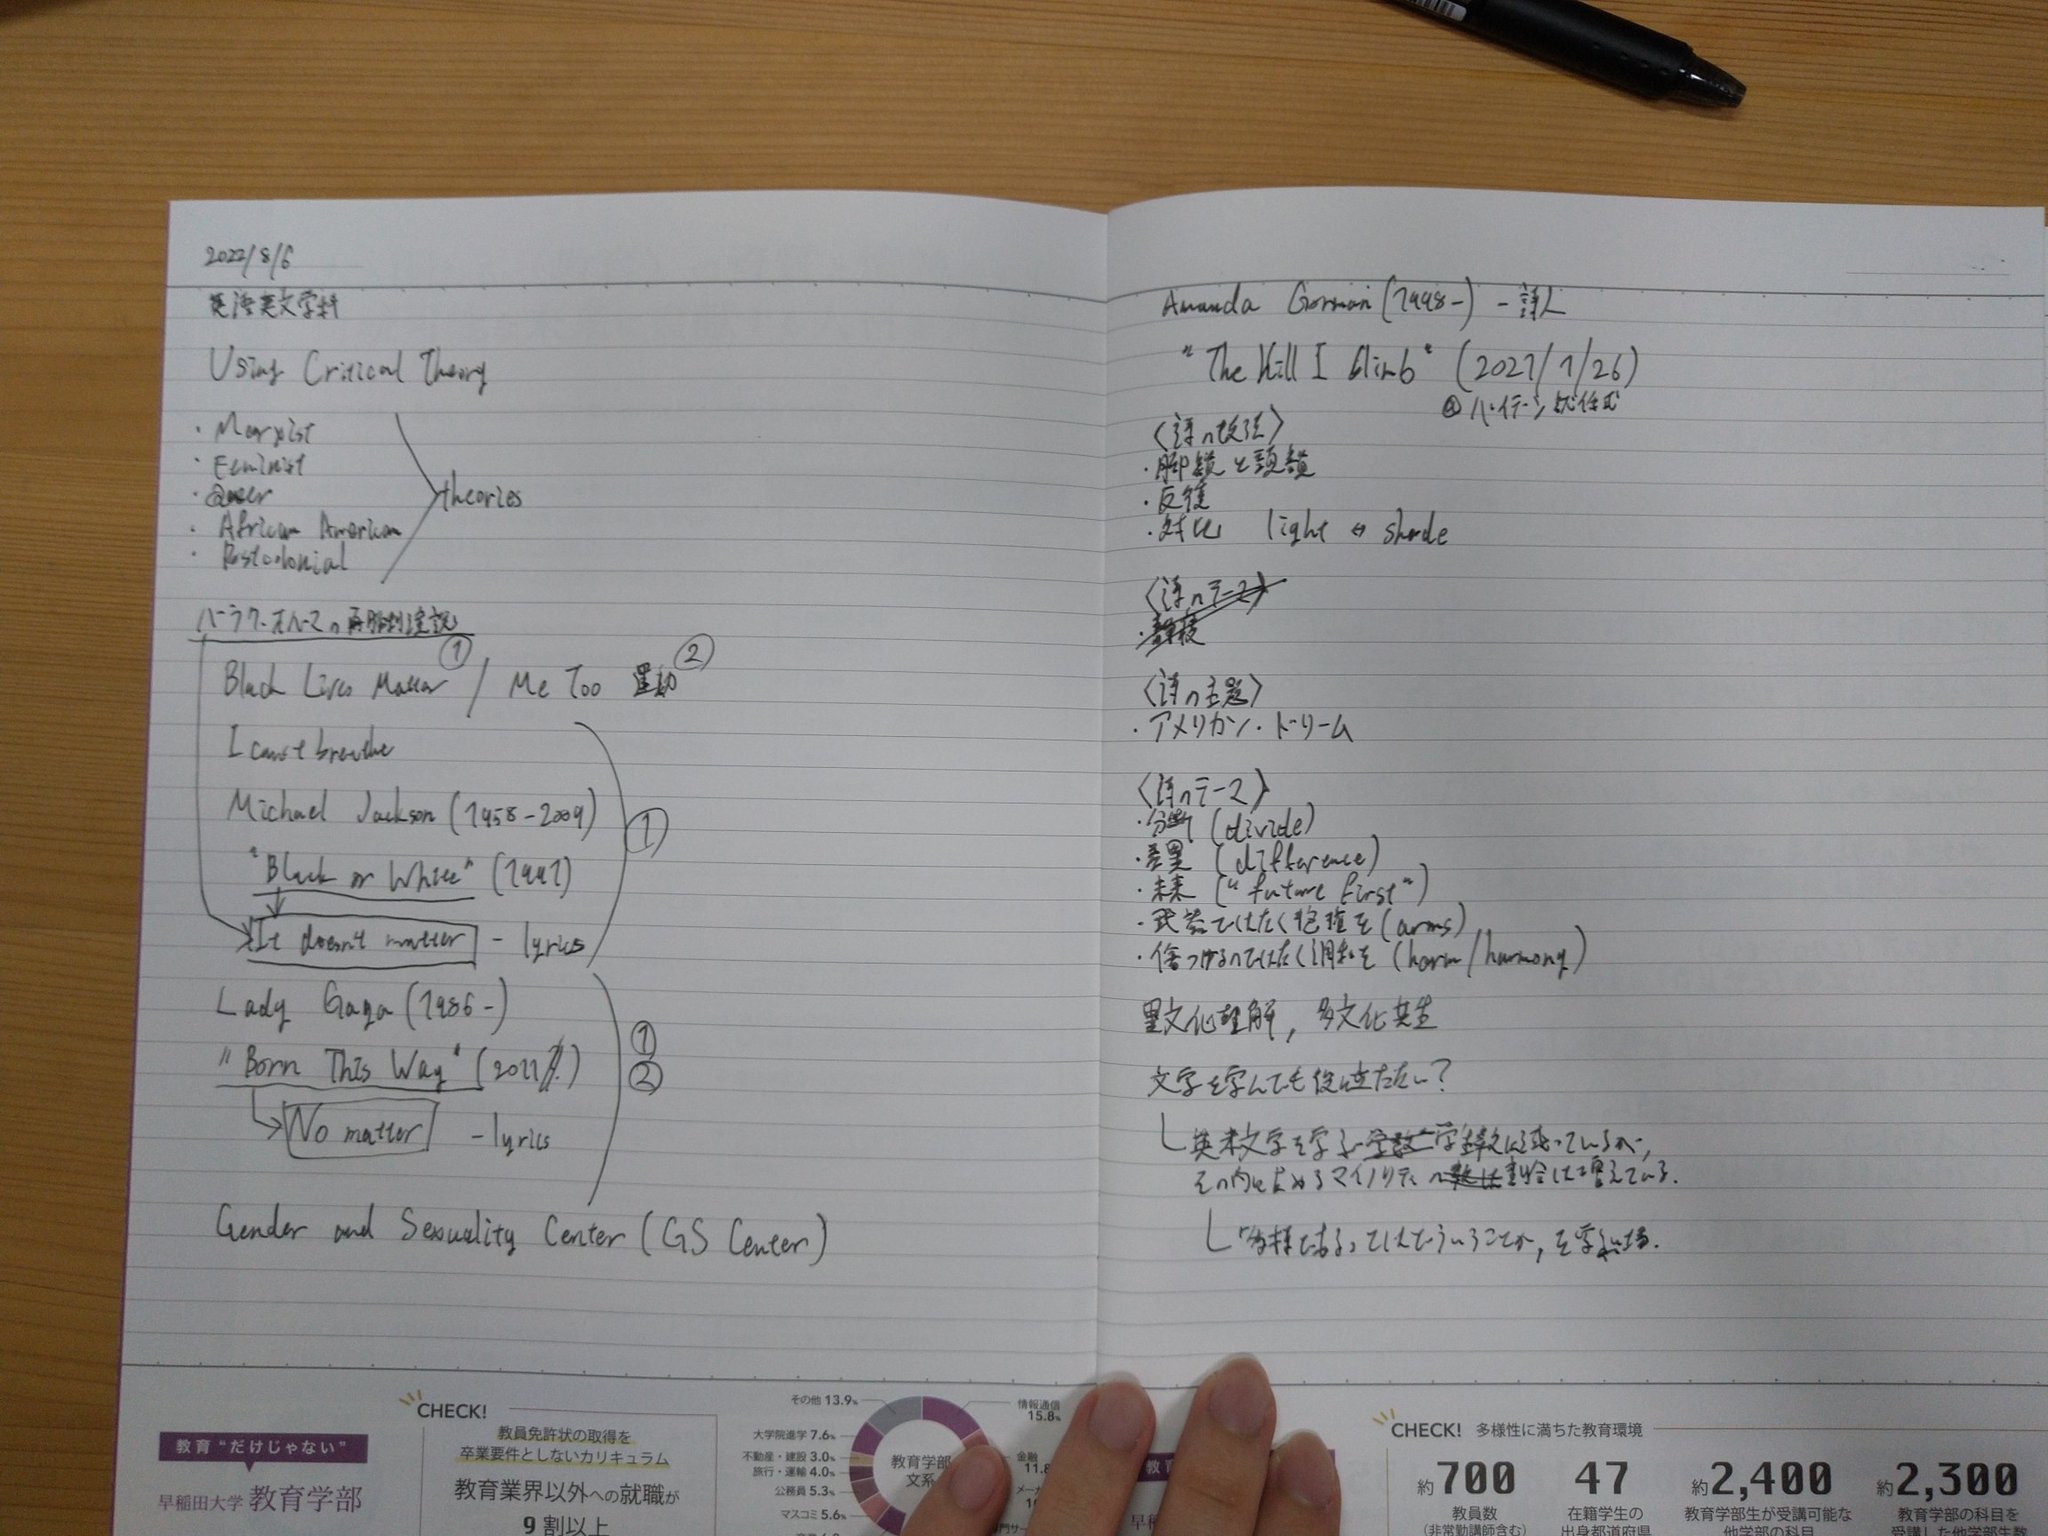 2022/8/6
英語英文学科
Using Critical Theory
・Marxist
・Feminist
・Queer
・African American
・Postcolonial
theories
バラク・オバマの再勝利演説
Black Lives Matter ① / Me Too 運動 ②
I can't breathe
Michael Jackson (1958-2009)
"Black or White" (1991)
It doesn't matter - lyrics
①
Lady Gaga (1986-)
"Born This Way" (2011)
No matter - lyrics
①
②
Gender and Sexuality Center (GS Center)
Amanda Gorman (1998-) - 詩人
"The Hill I Climb" (2021/1/26)
@バイデン就任式
〈詩の技法〉
・脚韻と頭韻
・反復
・対比 light ↔ shade
〈詩のテーマ〉
〈詩の主題〉
・アメリカン・ドリーム
〈詩のテーマ〉
・分断 (divide)
・差異 (difference)
・未来 ("future first")
・武器ではなく抱擁を (arms)
・傷つけるのではなく調和を (harm/harmony)
異文化理解, 多文化共生
文学を学んでも役に立たない?
英米文学を学ぶ学生数は減っているが,
その内に占めるマイノリティの割合は増えている.
多様であるってはどういうことか, を学ぶ場.
教育"だけじゃない"
早稲田大学 教育学部
CHECK!
教員免許状の取得を
卒業要件としないカリキュラム
教育業界以外への就職が
9割以上
その他 13.9%
大学院進学 7.6%
不動産・建設 3.0%
旅行・運輸 4.0%
公務員 5.3%
マスコミ 5.6%
教育学部
文系
情報通信
15.8%
金融
CHECK! 多様性に満ちた教育環境
約700
教員数
(非常勤講師含む)
47
在籍学生の
出身都道府県
約2,400
教育学部生が受講可能な
他学部の科目
約2,300
教育学部の科目を
受講した他学部生数